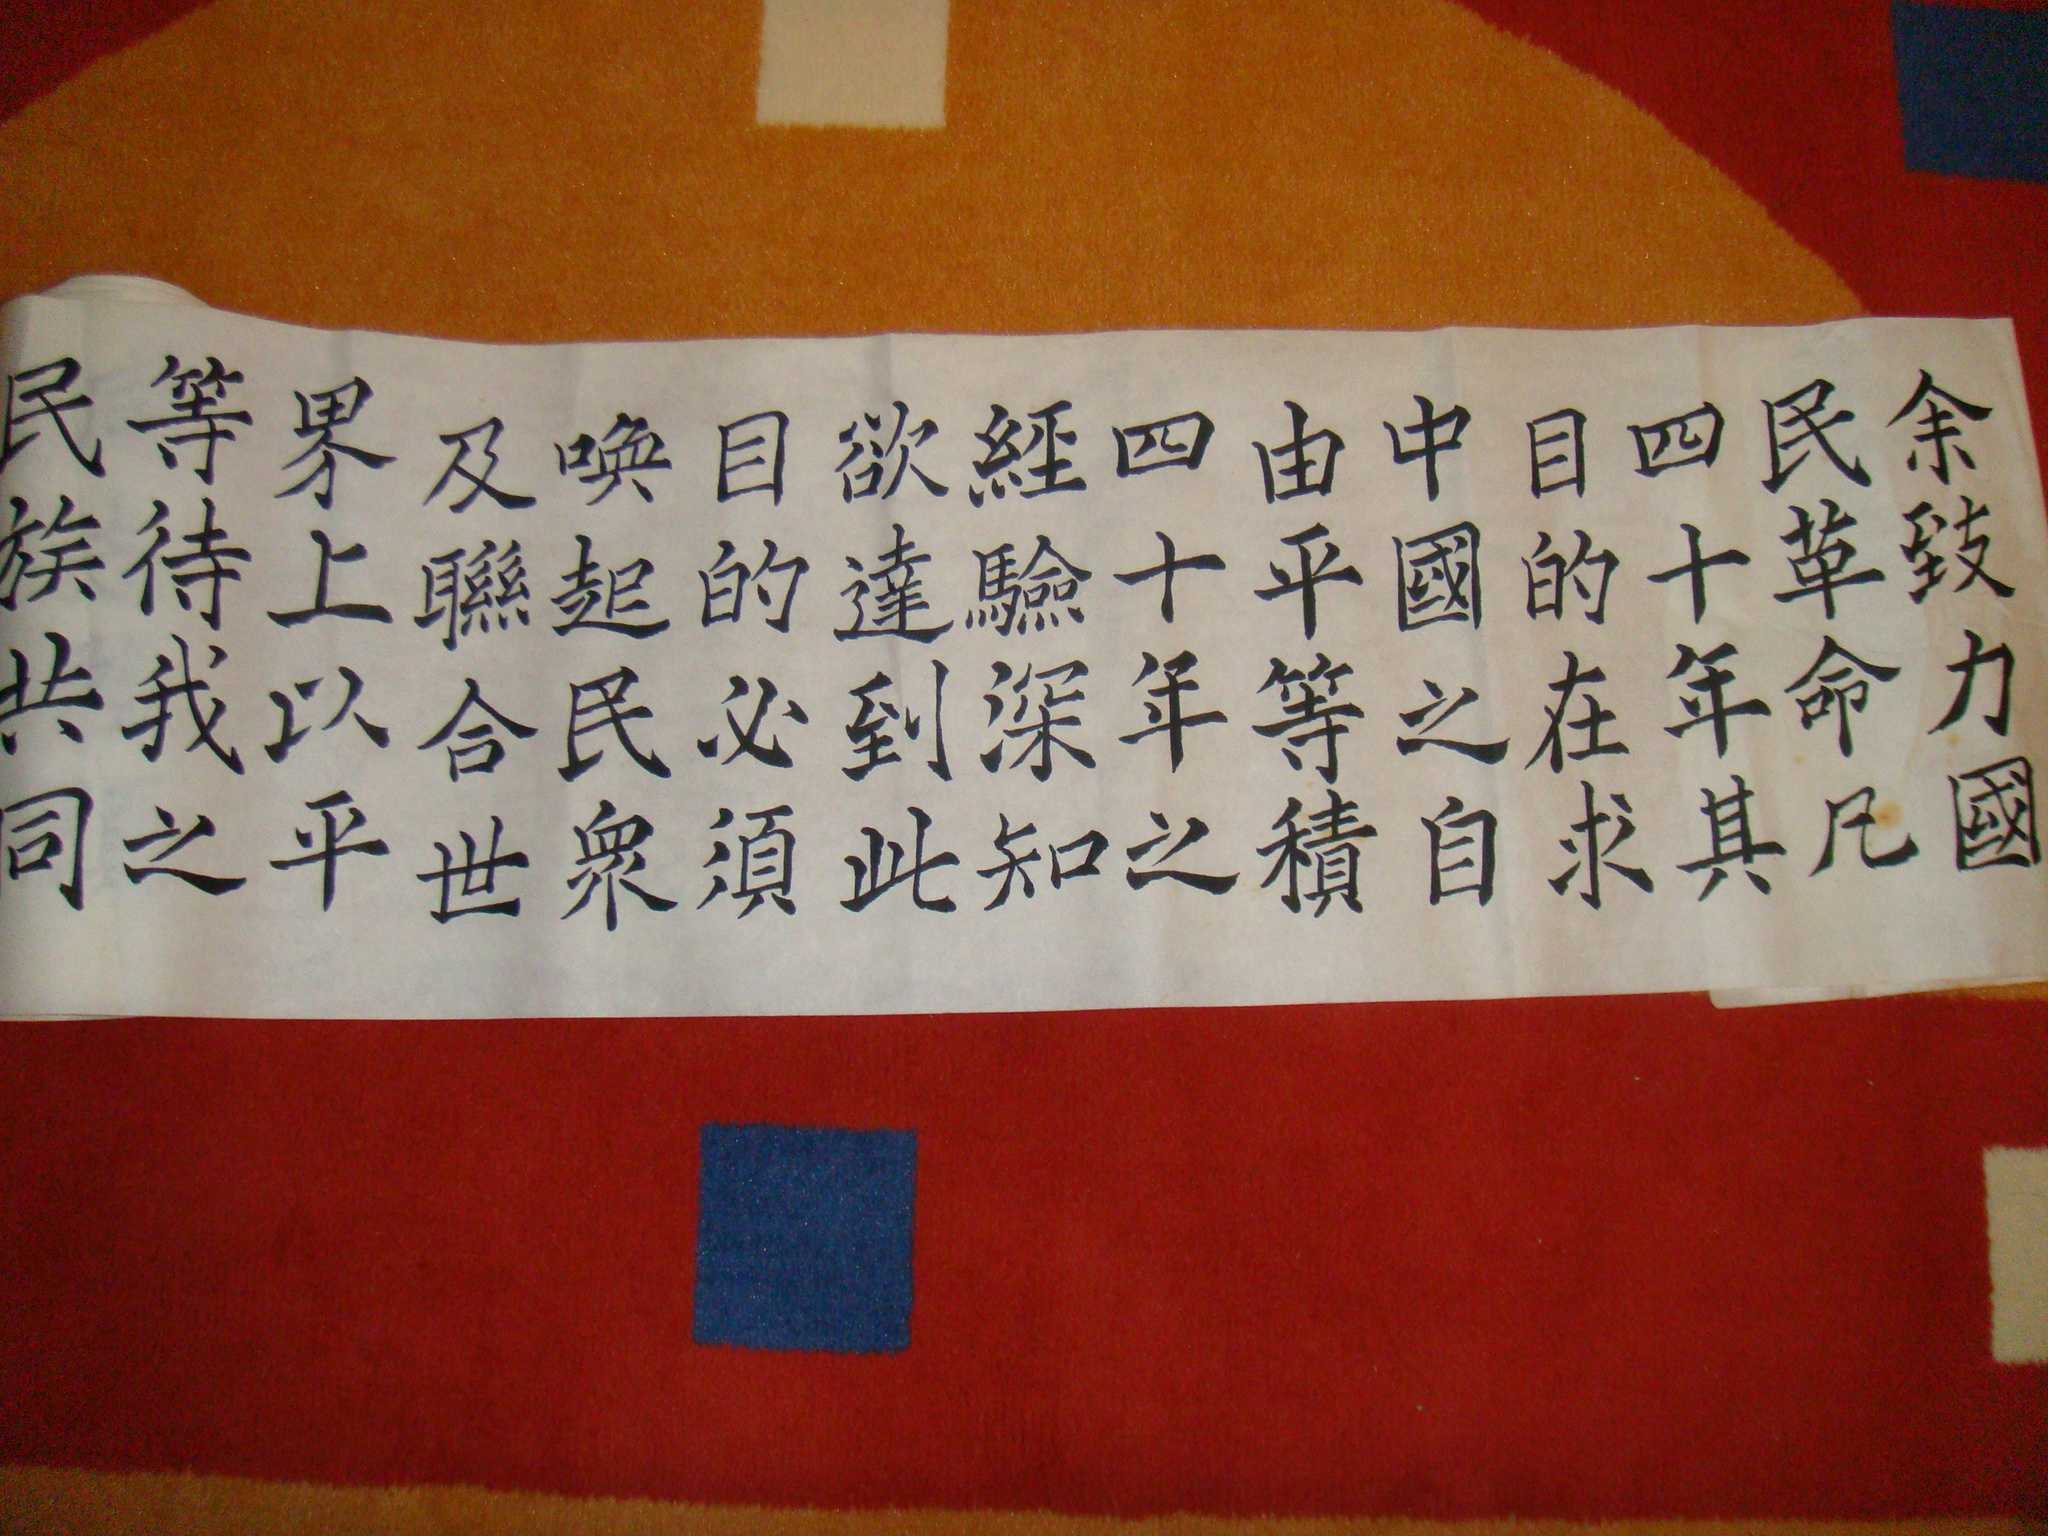 余致力國
民革命凡
四十年其
目的在求
中國之自
由平等積
四十年之
經驗深知
欲達到此
目的必須
喚起民眾
及聯合世
界上以平
等待我之
民族共同